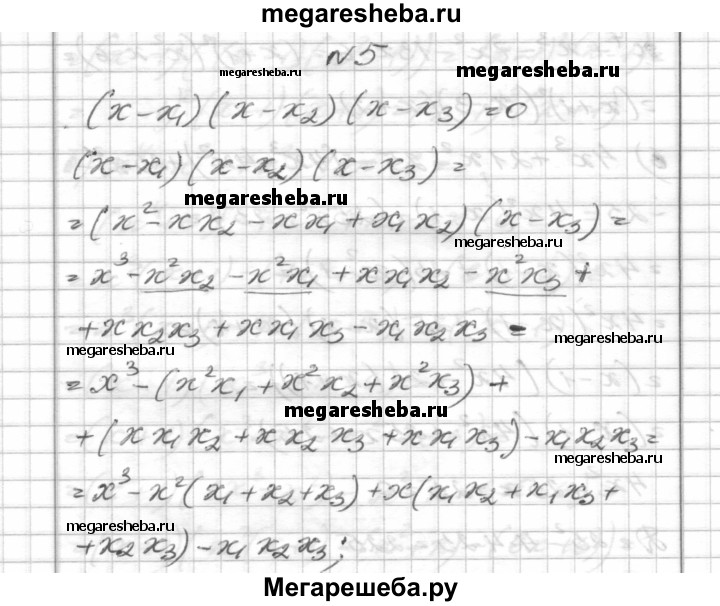 megaresheba.ru
N5
megaresheba.ru
megaresheba.ru
(x-x₁)(x-x₂)(x-x₃)=0
(x-x₁)(x-x₂)(x-x₃)=
megaresheba.ru
=(x²-xx₂-xx₁+x₁x₂)(x-x₃)=
megaresheba.ru
=x³-x²x₂-x²x₁+xx₁x₂-x²x₃+
+xx₂x₃+xx₁x₃-x₁x₂x₃=
megaresheba.ru
megaresheba.ru
=x³-(x²x₁+x²x₂+x²x₃)+
megaresheba.ru
+(xx₁x₂+xx₂x₃+xx₁x₃)-x₁x₂x₃=
megaresheba.ru
=x³-x²(x₁+x₂+x₃)+x(x₁x₂+x₁x₃+
megaresheba.ru
+x₂x₃)-x₁x₂x₃;
Мегарешеба.ру